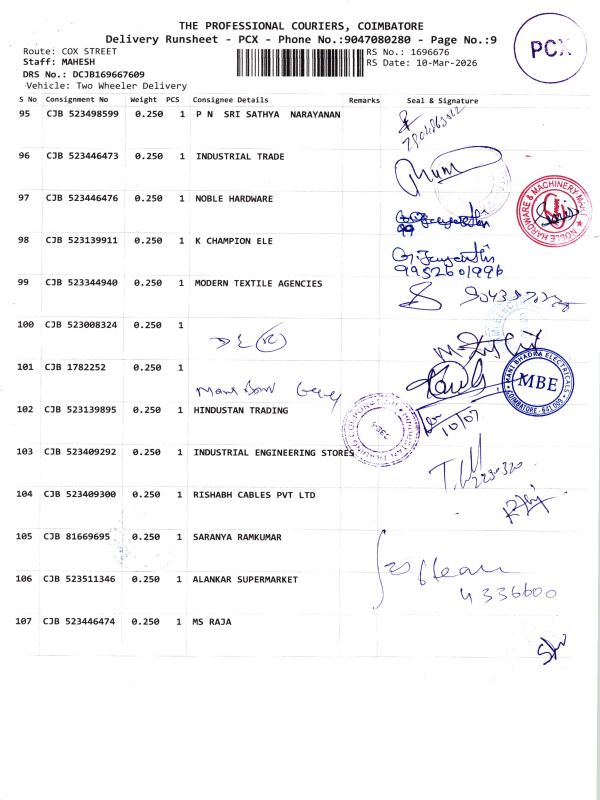 THE PROFESSIONAL COURIERS, COIMBATORE
Delivery Runsheet - PCX - Phone No.:9047080280 - Page No.:9
PCX
Route: COX STREET
RS No.: 1696676
Staff: MAHESH
RS Date: 10-Mar-2026
DRS No.: DCJB169667609
Vehicle: Two Wheeler Delivery
S No Consignment No Weight PCS Consignee Details Remarks Seal & Signature
95 CJB 523498599 0.250 1 P N SRI SATHYA NARAYANAN
96 CJB 523446473 0.250 1 INDUSTRIAL TRADE
97 CJB 523446476 0.250 1 NOBLE HARDWARE
NOBLE HARDWARE & MACHINERY
98 CJB 523139911 0.250 1 K CHAMPION ELE
G. Jayanthi
9952601996
99 CJB 523344940 0.250 1 MODERN TEXTILE AGENCIES
100 CJB 523008324 0.250 1
101 CJB 1782252 0.250 1
MANI BHADRA ELECTRICALS
MBE
COIMBATORE - 641 001
102 CJB 523139895 0.250 1 HINDUSTAN TRADING
10/07
103 CJB 523409292 0.250 1 INDUSTRIAL ENGINEERING STORES
104 CJB 523409300 0.250 1 RISHABH CABLES PVT LTD
105 CJB 81669695 0.250 1 SARANYA RAMKUMAR
106 CJB 523511346 0.250 1 ALANKAR SUPERMARKET
4336600
107 CJB 523446474 0.250 1 MS RAJA